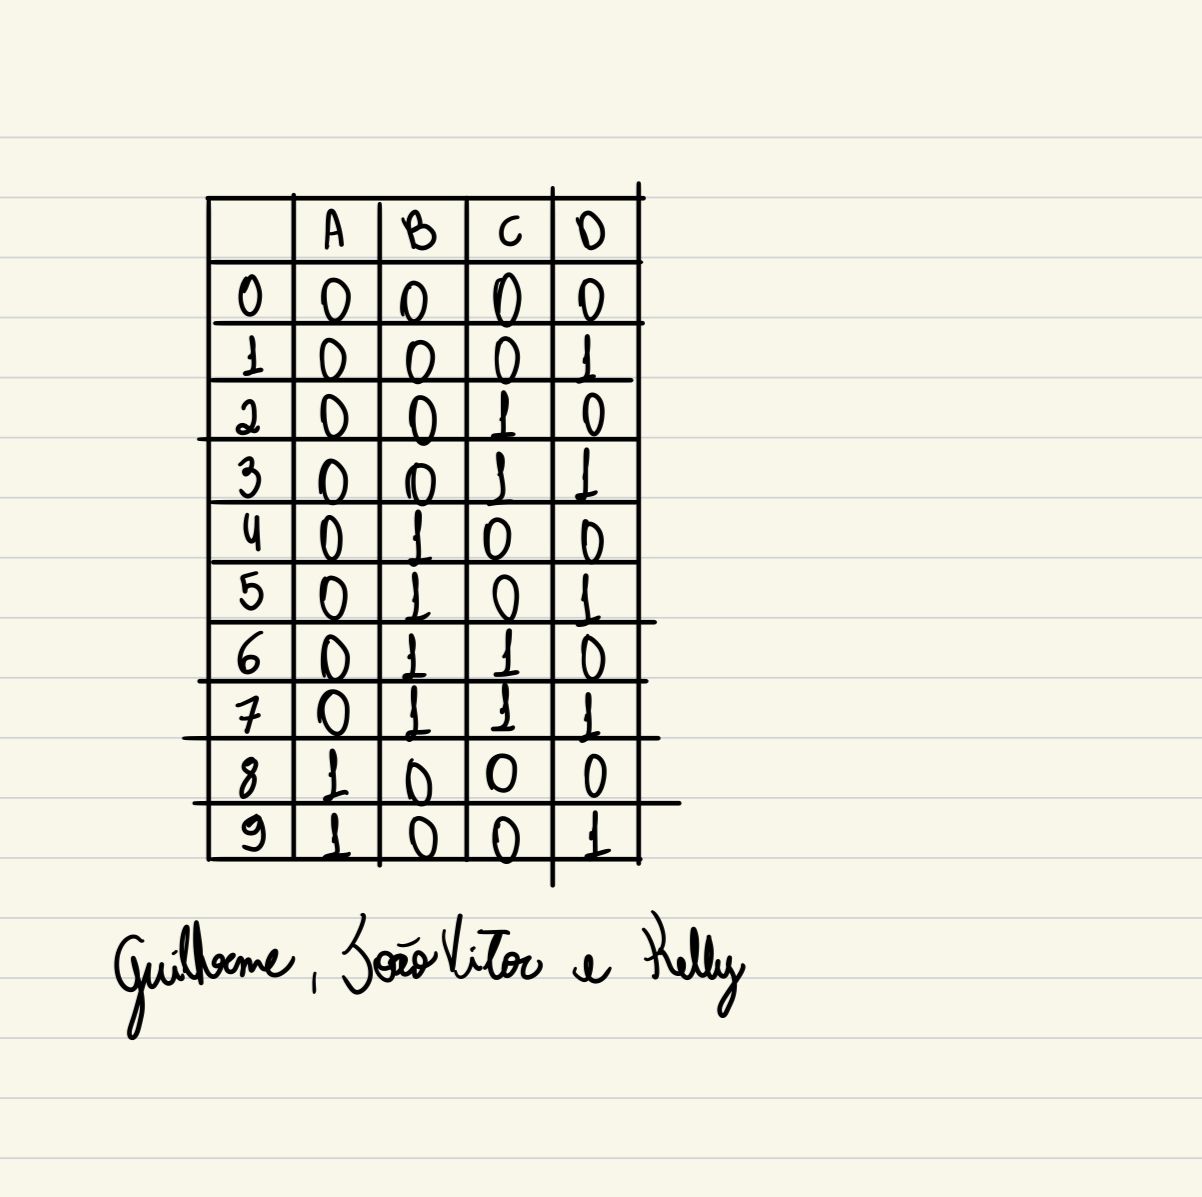 A B C D
0 0 0 0 0
1 0 0 0 1
2 0 0 1 0
3 0 0 1 1
4 0 1 0 0
5 0 1 0 1
6 0 1 1 0
7 0 1 1 1
8 1 0 0 0
9 1 0 0 1
Guilherme, João Vitor e Kelly